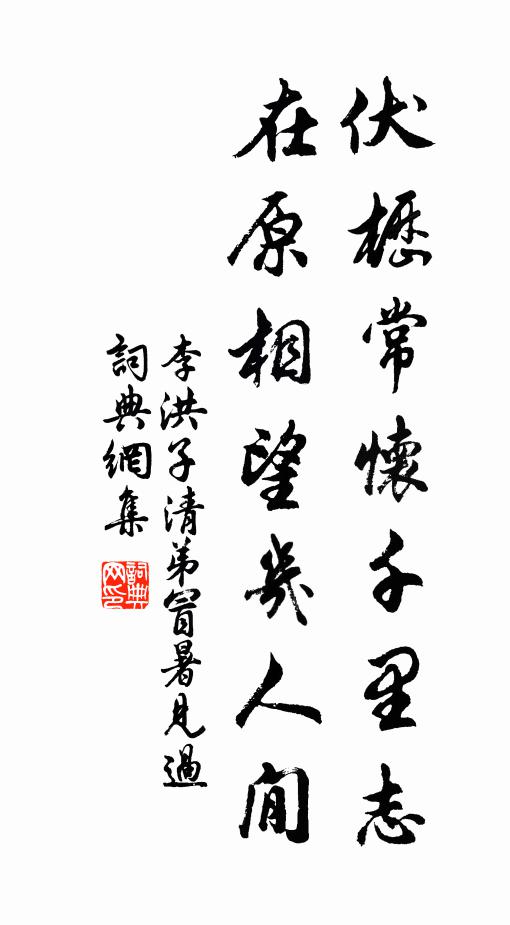 伏櫪常懷千里志
在原相望幾人閒
李洪子清弟冒暑見過
詞典網集
詞典网印